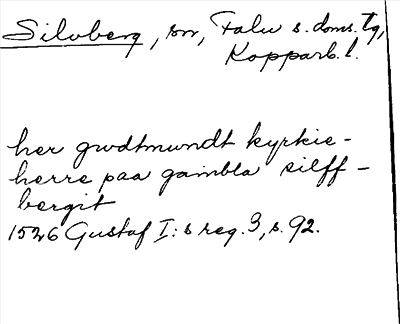 Silvberg, sn, Falu s. doms. tg,
Kopparb. l.
her gwdtmundt kyrkie-
herre paa gambla silff-
bergit
1526 Gustaf I:s reg. 3, s. 92.